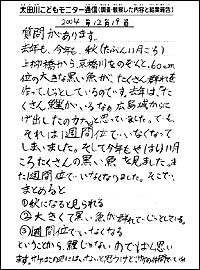 太田川こどもモニター通信(調査・観察した内容と結果報告)
2004年12月19日
質問があります。
去年も、今年も、秋(たぶん11月ごろ)
上柳橋から、京橋川をのぞくと、60cm
位の大きな黒い魚が、たくさん群れを作
って、じっとしているのです。去年は、「た
くさん鯉がいるなあ広島城からに
げ出したのカナ」と思っていました。でも、
それは1週間位でいなくなって
しまいました。そして今年もやはり11月
ころたくさんの黒い魚を見ました。ま
た1週間位でいなくなりました。そこで、
まとめると
①秋になると見られる
②大きくて黒い魚が群れで、じっとしている。
③1週間位でいなくなる
ということから、鯉じゃないのではと思い
ます。